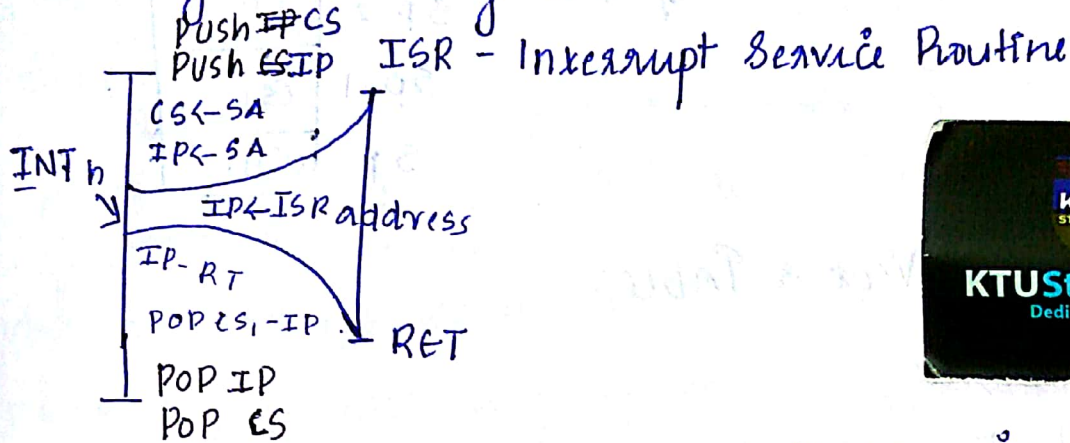 Push CS
Push IP
ISR - Interrupt Service Routine
CS<-SA
IP<-SA
INT n
IP<-ISR address
IP- RT
POP CS, -IP
RET
POP IP
POP CS
KTUSt
Dedi